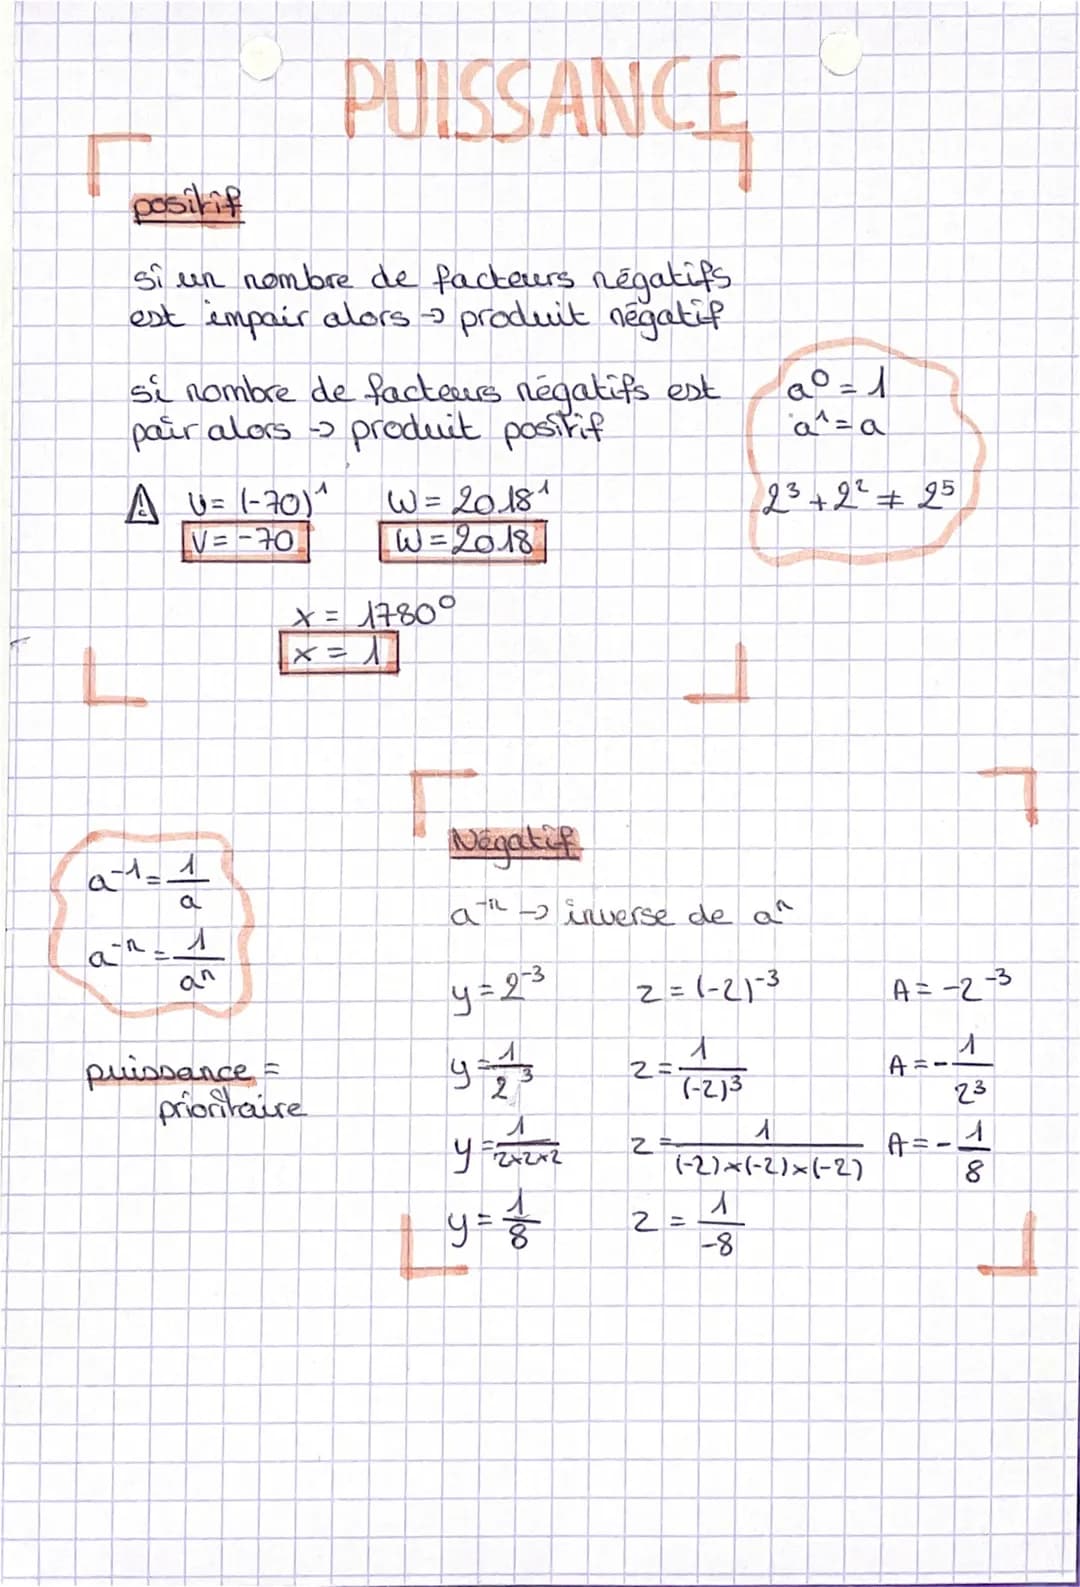 PUISSANCE
positif
si un nombre de facteurs négatifs
est impair alors → produit négatif
si nombre de facteurs négatifs est
pair alors → produit positif
a⁰ = 1
a¹ = a
2³ + 2² ≠ 2⁵
⚠ V = (-70)¹ W = 2018¹
V = -70 W = 2018
x = 1780⁰
x = 1
a⁻¹ = 1/a
a⁻ⁿ = 1/aⁿ
puissance =
prioritaire
Négatif
a⁻ⁿ → inverse de aⁿ
y = 2⁻³ z = (-2)⁻³ A = -2⁻³
y = 1/2³ z = 1/(-2)³ A = -1/2³
y = 1/2×2×2 z = 1/(-2)×(-2)×(-2) A = -1/8
y = 1/8 z = 1/-8